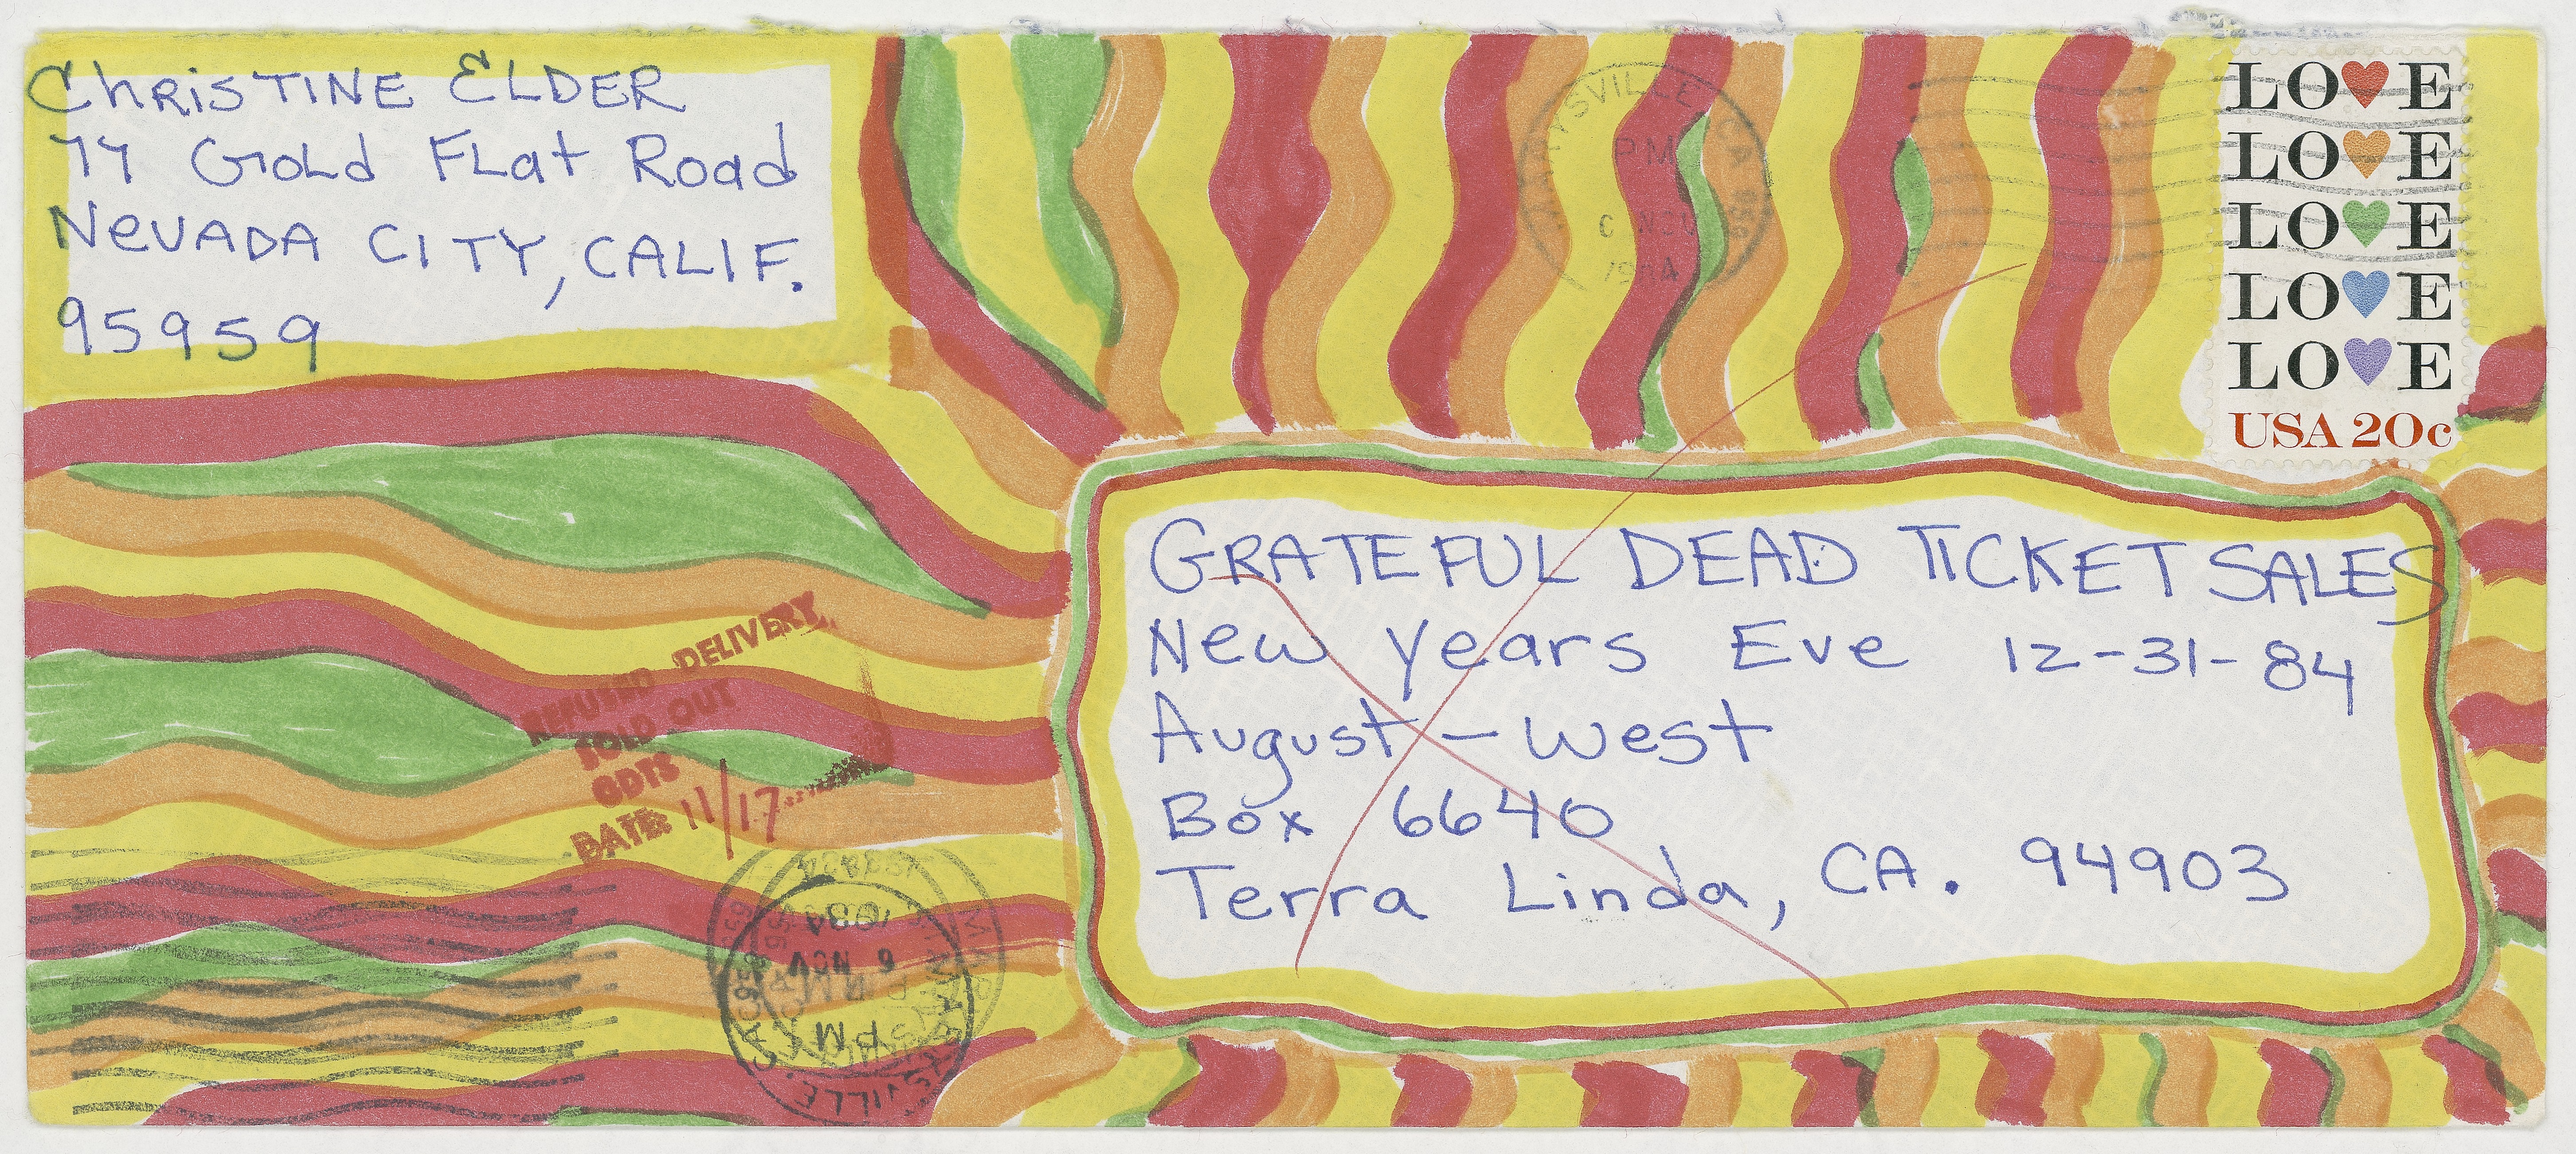 Christine Elder
77 Gold Flat Road
Nevada City, Calif.
95959
MARYSVILLE CA 959
PM
6 NOV
1984
LOVE
LOVE
LOVE
LOVE
LOVE
USA 20c
GRATEFUL DEAD TICKET SALES
New years Eve 12-31-84
August - West
Box 6640
Terra Linda, CA. 94903
REFUSED DELIVERY
SOLD OUT
GDTS
DATE 11/17
MARYSVILLE, CA 959
PM
6 NOV
1984